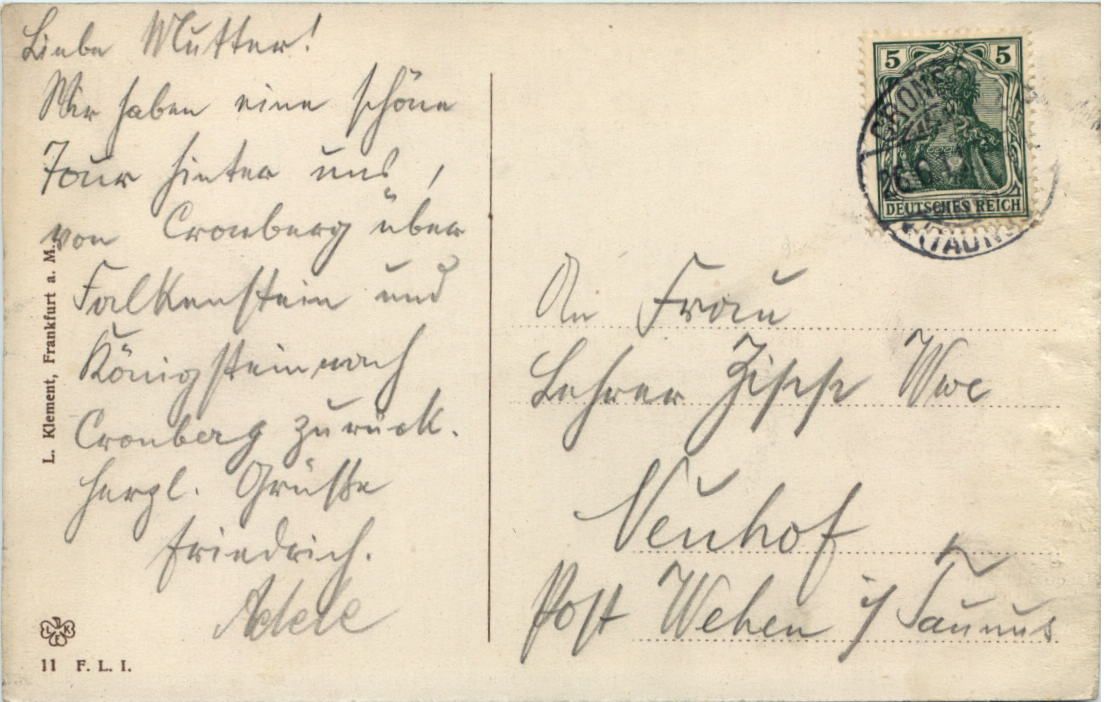 Liebe Mutter!
Wir haben eine schöne
Tour hinter uns,
von Cronberg über
Falkenstein und
Königstein nach
Cronberg zurück.
Herzl. Grüße
Friedrich.
Adele
L. Klement, Frankfurt a. M.
11 F. L. I.
5 5
DEUTSCHES REICH
CRONBERG
(TAUNUS)
An Frau
Lehrer Zipp Wwe
Neuhof
Post Wehen i/Taunus